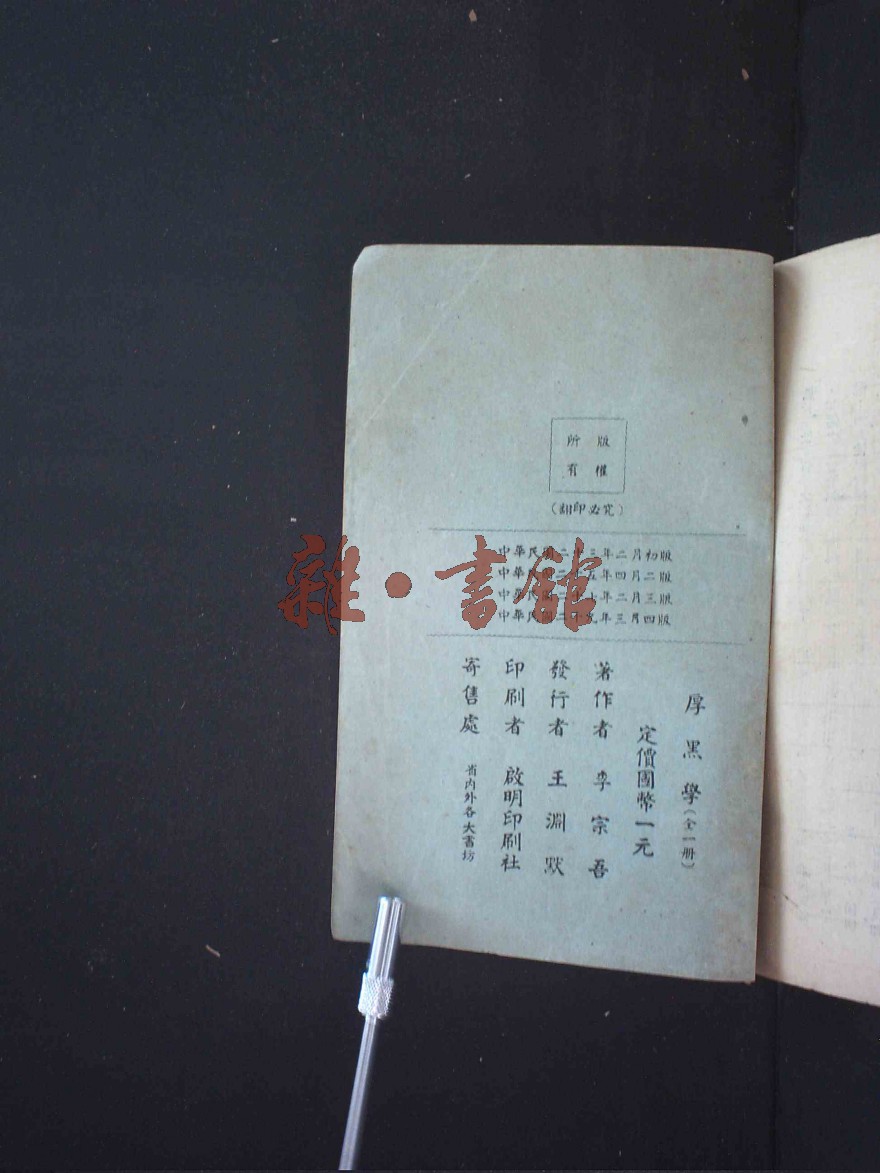 版權
所有
（翻印必究）
中華民國二十三年二月初版
中華民國二十五年四月二版
中華民國二十七年二月三版
中華民國二十九年三月四版
厚黑學（全一册）
定價國幣一元
著作者 李宗吾
發行者 王淵默
印刷者 啟明印刷社
寄售處 省内外各大書坊
雜·書館